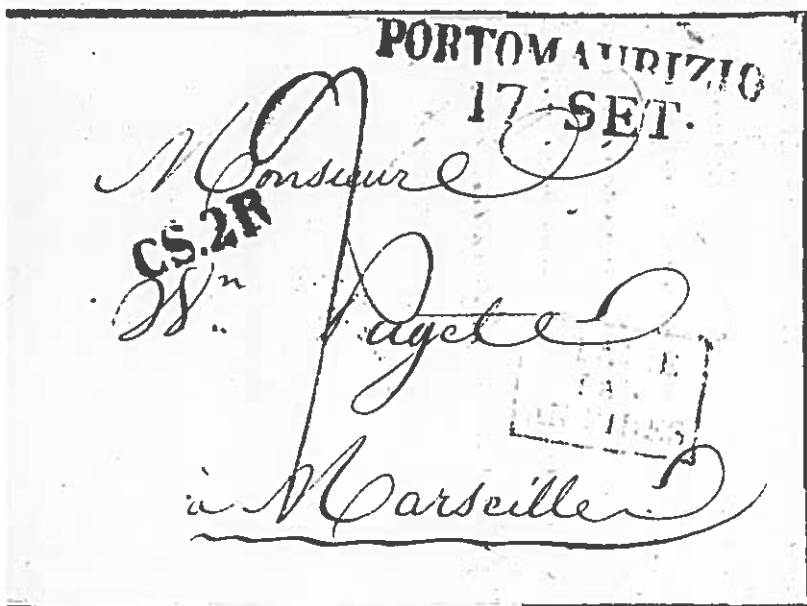 PORTOMAURIZIO
17 SET.
Monsieur
CS.2R
Wn
Paget
à Marseille